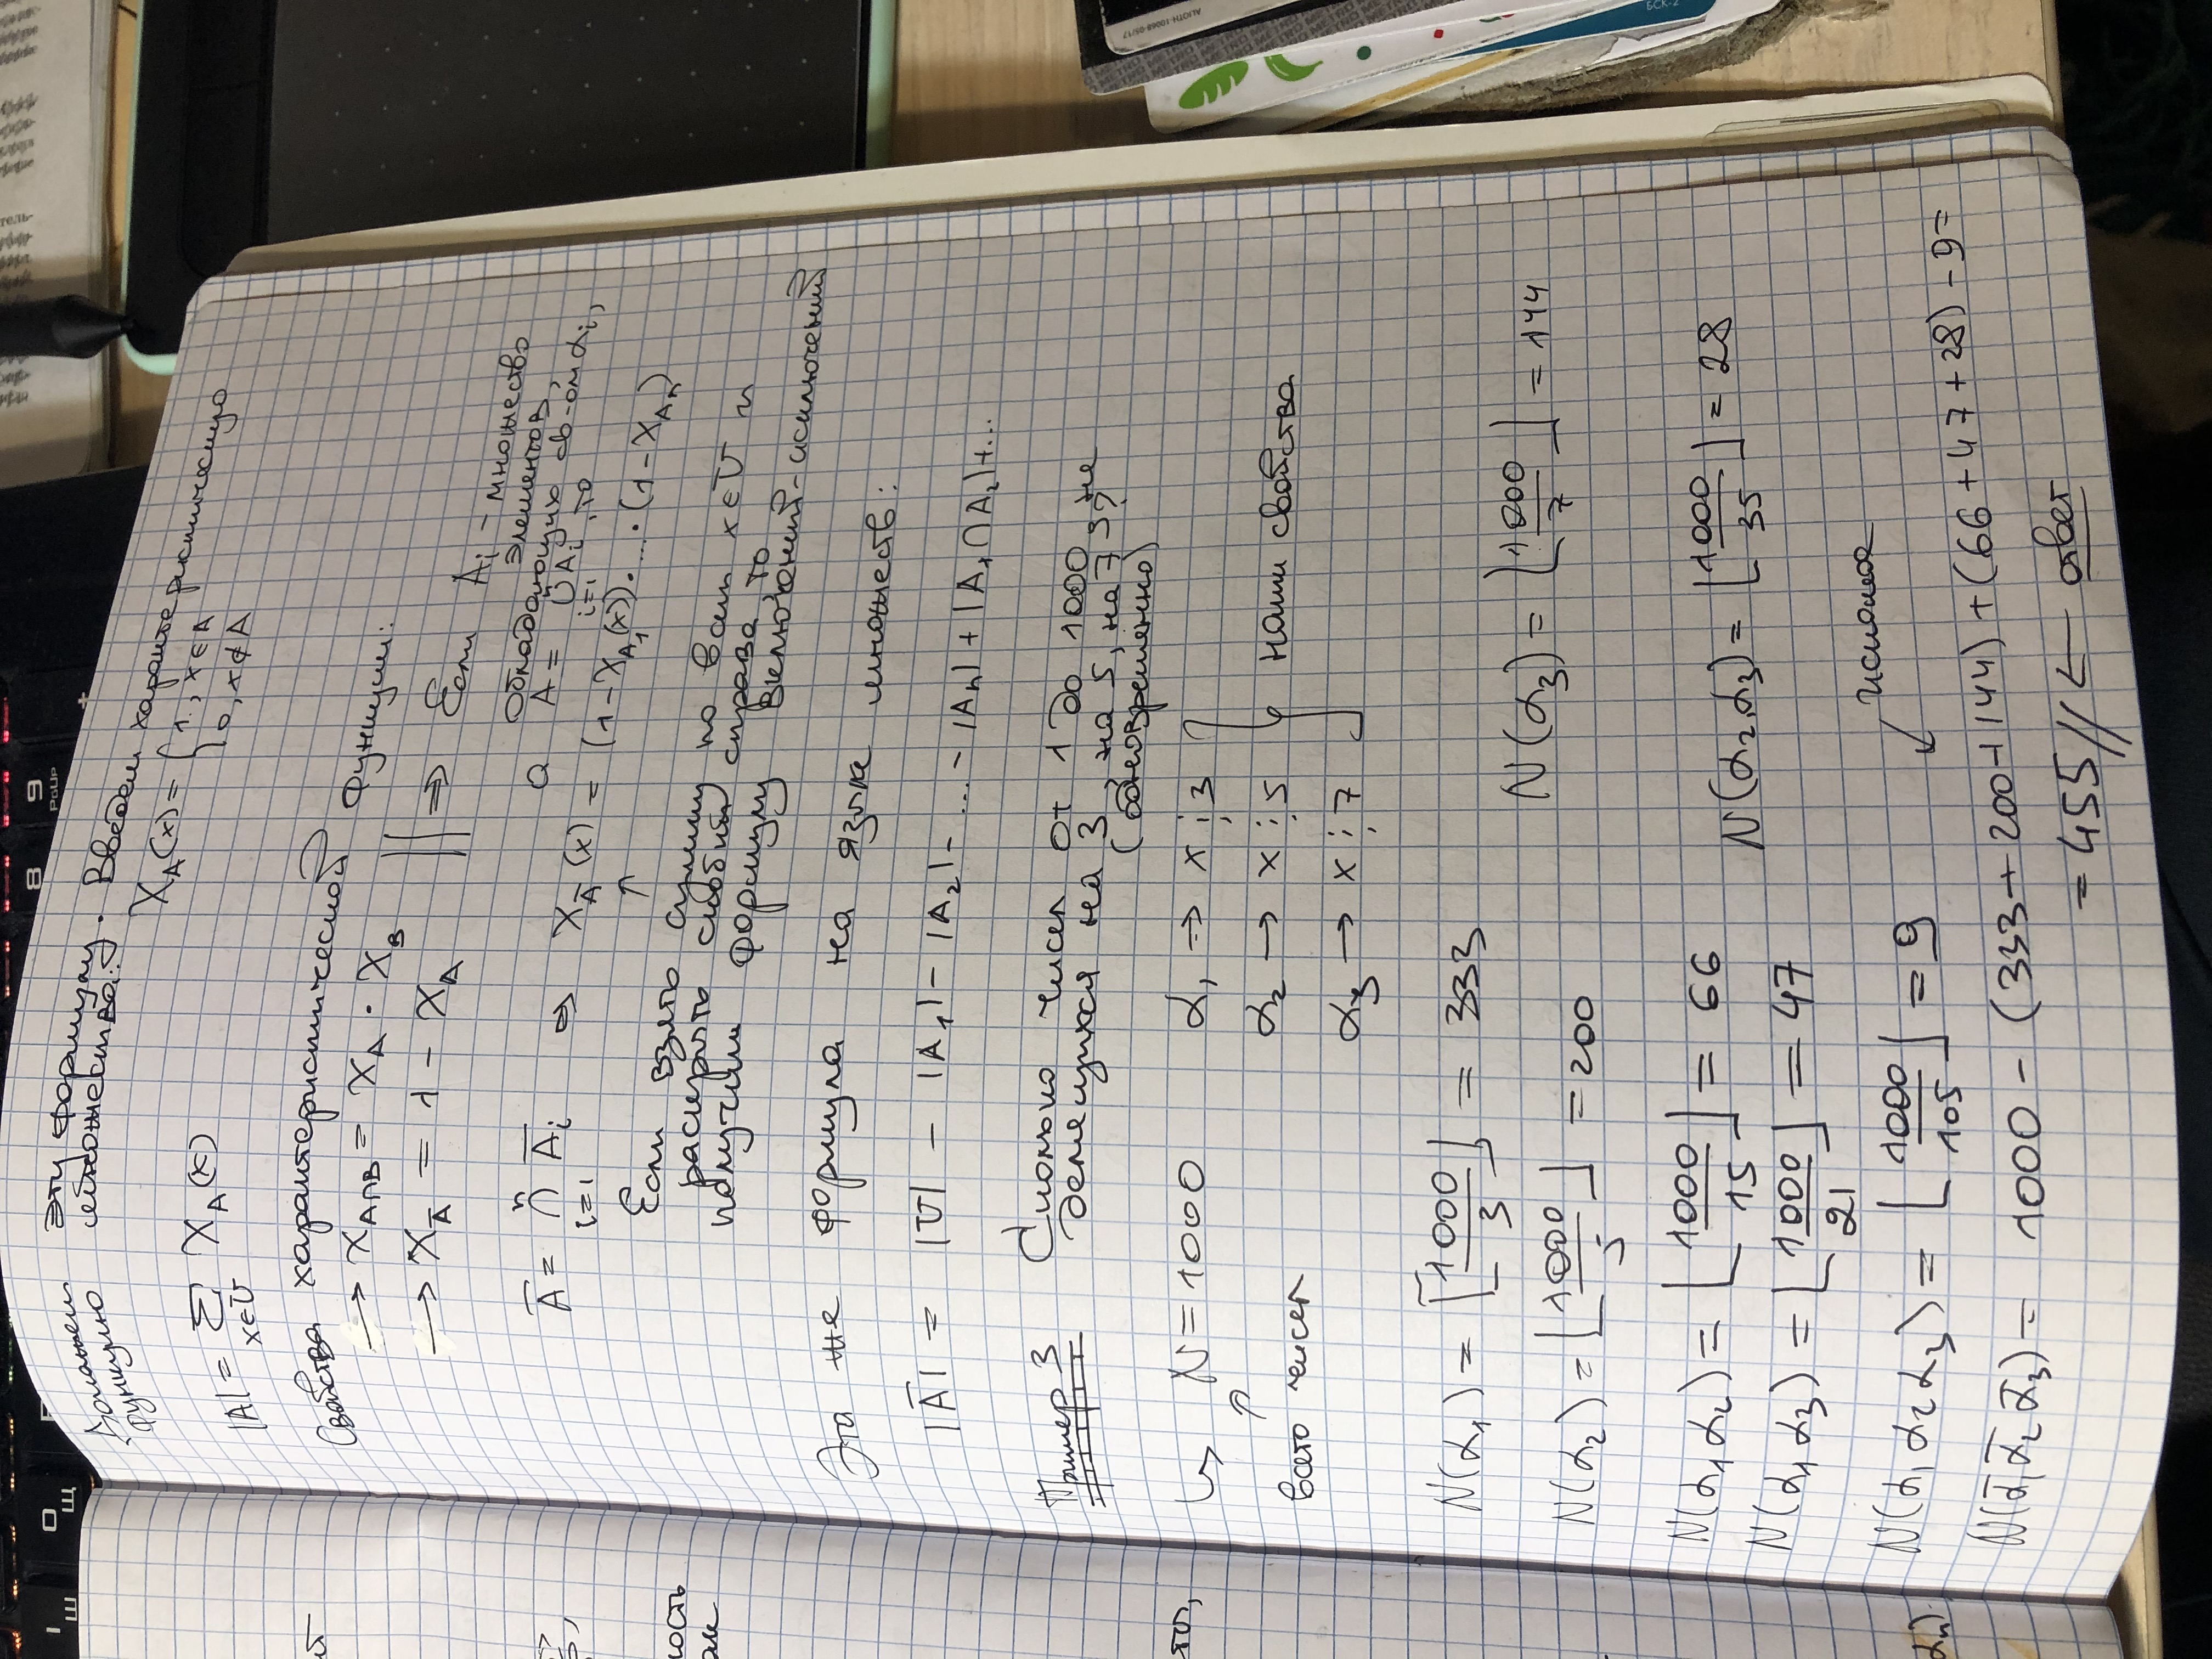 Докажем эту формулу. Введем характеристическую
функцию множества:
χ_A(x) = { 1, x ∈ A
0, x ∉ A
|A| = Σ_{x∈U} χ_A(x)
Свойства характеристической функции:
→ χ_{A∩B} = χ_A · χ_B
→ χ_Ā = 1 - χ_A
⇒ Если A_i - множество
элементов,
обладающих св-ом α_i,
а A = ∪_{i=1}^n A_i, то
Ā = ∩_{i=1}^n Ā_i ⇒ χ_Ā(x) = (1-χ_{A_1}(x))·...·(1-χ_{A_n})
Если взять сумму по всем x∈U и
раскрыть скобки справа, то
получим формулу включений-исключений
Эта же формула на языке множеств:
|Ā| = |U| - |A_1| - |A_2| - ... - |A_n| + |A_1∩A_2| + ...
Пример 3 Сколько чисел от 1 до 1000, не
делящихся на 3, на 5, на 7?
(одновременно)
↳ N = 1000
↑
всего чисел
α_1 → x ⋮ 3
α_2 → x ⋮ 5
α_3 → x ⋮ 7
наши свойства
N(α_1) = ⌊1000/3⌋ = 333
N(α_3) = ⌊1000/7⌋ = 144
N(α_2) = ⌊1000/5⌋ = 200
N(α_1 α_2) = ⌊1000/15⌋ = 66
N(α_2,α_3) = ⌊1000/35⌋ = 28
N(α_1 α_3) = ⌊1000/21⌋ = 47
N(α_1 α_2 α_3) = ⌊1000/105⌋ = 9
искомое
N(ᾱ_1 ᾱ_2 ᾱ_3) = 1000 - (333 + 200 + 144) + (66 + 47 + 28) - 9 =
= 455// ← ответ
8
9
PgUp
І
Ш
О
Щ
ность